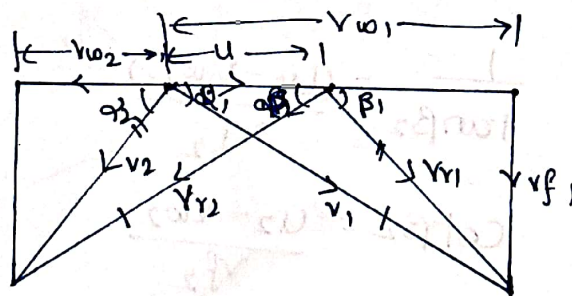 Vω1
Vω2 u
α2 α1 β1
V2 Vr2 V1 Vr1 Vf1